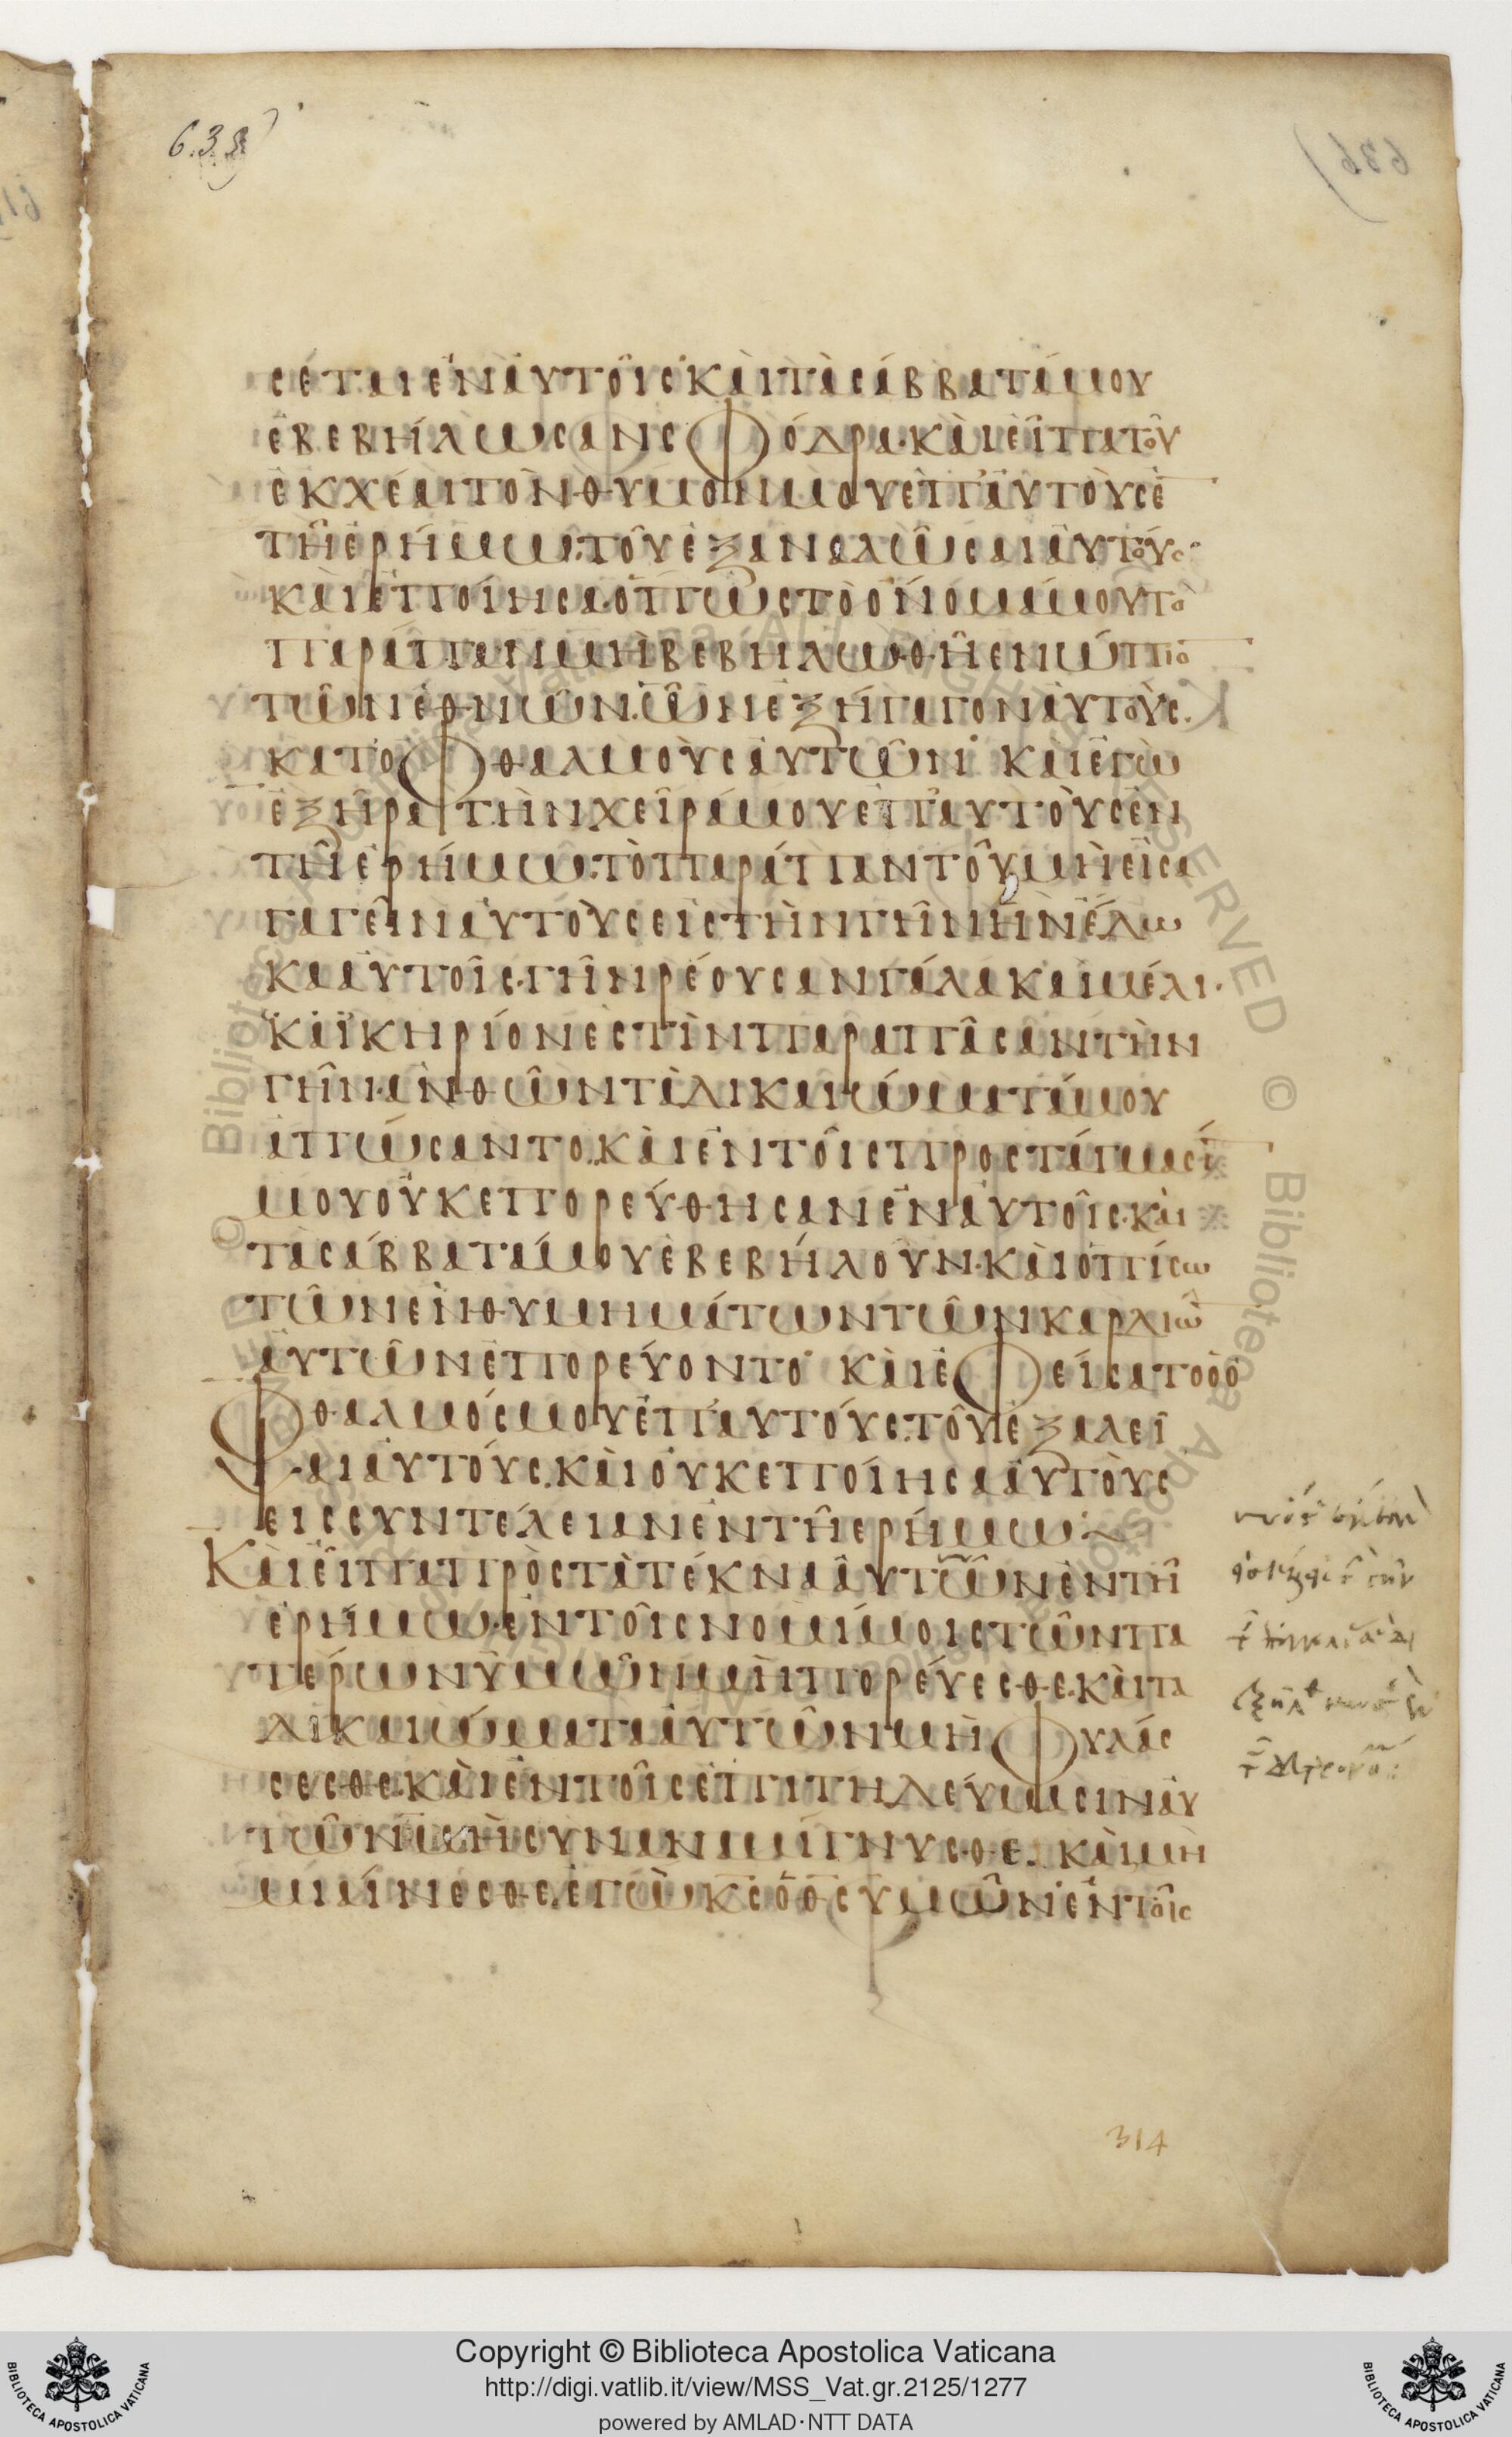 638
636
σέται ἐν αὐτοῖς καὶ τὰ σάββατά μου
ἐβεβήλωσαν σφόδρα· καὶ εἶπα τοῦ
ἐκχέαι τὸν θυμόν μου ἐπ' αὐτοὺς ἐ̅
τῆ ἐρήμω· τοῦ ἐξαναλῶσαι αὐτούς·
καὶ ἐποίησα ὅπως τὸ ὄνομά μου τὸ
παράπαν μὴ βεβηλωθῆ ἐνώπιο̅
τῶν ἐθνῶν. ὧν ἐξήγαγον αὐτοὺς.
κατ οφθαλμοὺς αὐτῶν· καὶ ἐγὼ
ἐξῆρα τὴν χεῖρά μου ἐπ' αὐτοὺς ἐν
τῆ ἐρήμω· τὸ παράπαν τοῦ μὴ εἰσα
γαγεῖν αὐτοὺς εἰς τὴν γῆν ἣν ἔδω
κα αὐτοῖς· γῆν ρέουσαν γάλα καὶ μέλι·
καὶ κηρίον ἐστὶν παρα πᾶσαν τὴν
γῆν· ἀνθ ὧν τὰ δικαιώματά μου
ἀπώσαντο. καὶ ἐν τοῖς προστάγμασί̅
μου οὐκ επορεύθησαν ἐν αὐτοῖς· καὶ
τὰ σάββατά μου ἐβεβήλουν· καὶ ὀπίσω
τῶν ἐνθυμημάτων τῶν καρδιῶ̅
αὐτῶν ἐπορεύοντο· καὶ ἐφείσατο ὁ ὀ
φθαλμός μου ἐπ' αὐτούς· τοῦ ἐξαλεῖ
ψαι αὐτούς. καὶ οὐκ εποίησα αὐτοὺς
εις συντέλειαν ἐν τῆ ερήμω·
Καὶ εἶπα πρὸς τὰ τέκνα αὐτῶν ἐν τῆ
ἐρήμω· ἐν τοῖς νομίμοις τῶν πα
τέρων ὑμῶν μὴ πορεύεσθε. καὶ τα
δικαιώματα αὐτῶν μὴ φυλάς
σεσθε. καὶ ἐν τοῖς ἐπιτηδεύμασιν αὐ
τῶν μὴ συναναμίγνυσθε. καὶ μὴ
μιαίνεσθε. ἐγὼ κ̅ς̅ ὁ θ̅ς̅ υμῶν· ἐν τοῖς
314
Copyright © Biblioteca Apostolica Vaticana
http://digi.vatlib.it/view/MSS_Vat.gr.2125/1277
powered by AMLAD·NTT DATA
BIBLIOTECA APOSTOLICA VATICANA
BIBLIOTECA APOSTOLICA VATICANA